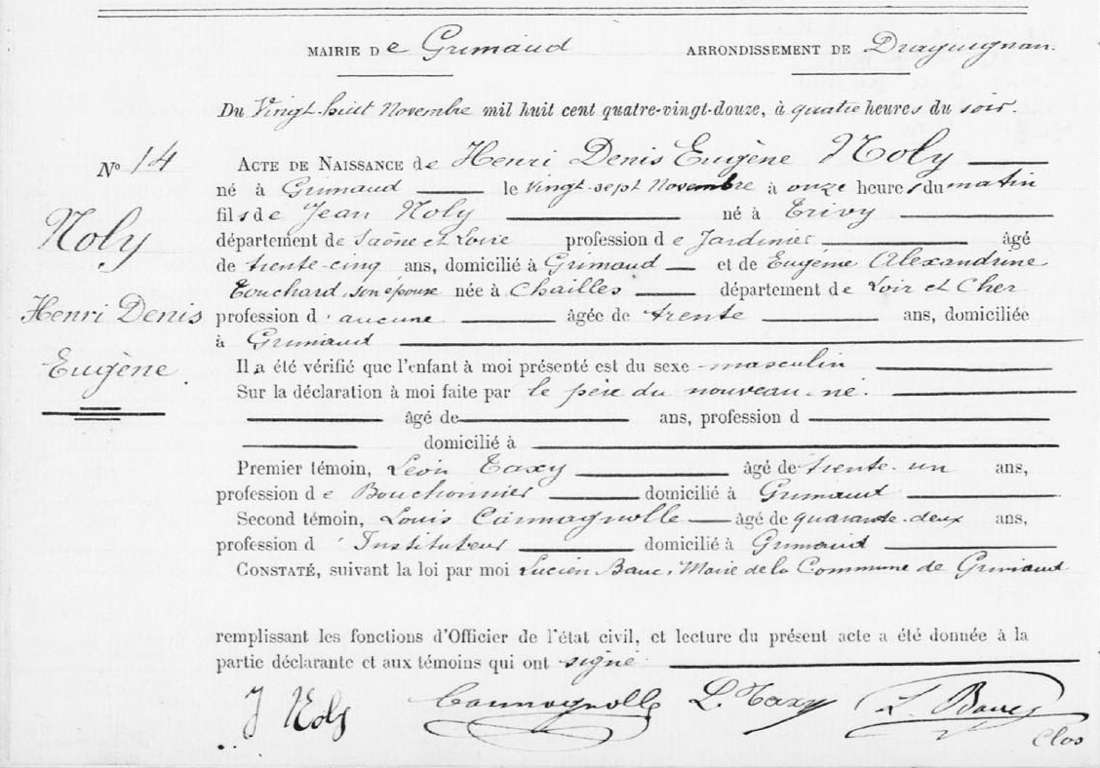 MAIRIE De Grimaud ARRONDISSEMENT DE Draguignan.
Du Vingt-huit Novembre mil huit cent quatre-vingt-douze, à quatre heures du soir.
N° 14 ACTE DE NAISSANCE de Henri Denis Eugène Noly
né à Grimaud le vingt-sept Novembre à onze heures du matin
Noly
fils de Jean Noly né à Trivy
département de Saône et Loire profession de Jardinier âgé
de trente-cinq ans, domicilié à Grimaud et de Eugénie Alexandrine
Touchard, son épouse née à Chailles département de Loir et Cher
Henri Denis
profession d'aucune âgée de trente ans, domiciliée
à Grimaud
Eugène.
Il a été vérifié que l'enfant à moi présenté est du sexe masculin
Sur la déclaration à moi faite par le père du nouveau-né.
âgé de ans, profession d
domicilié à
Premier témoin, Léon Taxy âgé de trente-un ans,
profession de Bouchonnier domicilié à Grimaud
Second témoin, Louis Carmagnolle âgé de quarante-deux ans,
profession d'Instituteur domicilié à Grimaud
CONSTATÉ, suivant la loi par moi Lucien Maire de la Commune de Grimaud
remplissant les fonctions d'Officier de l'état civil, et lecture du présent acte a été donnée à la
partie déclarante et aux témoins qui ont signé
J Noly Carmagnolle L. Taxy L.
Clos